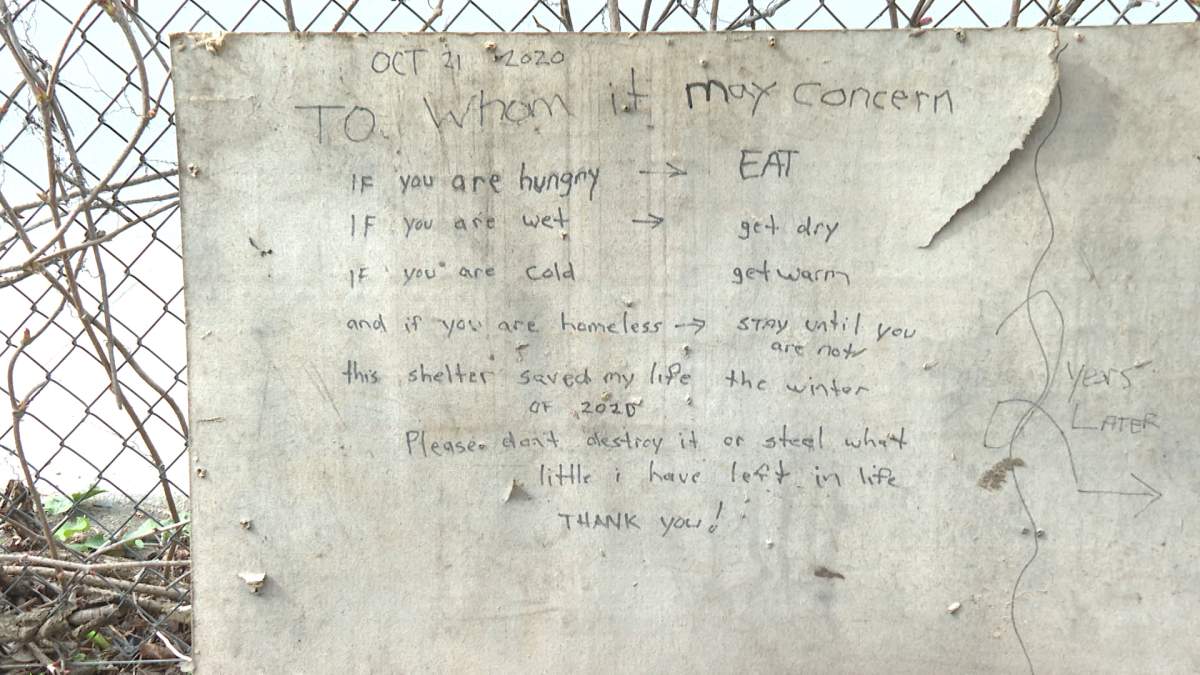 OCT 21 2020
TO Whom it may concern
IF you are hungry → EAT
IF you are wet → get dry
IF you are cold get warm
and if you are homeless → STAY until you
are not
this shelter saved my life the winter
OF 2020
Please don't destroy it or steal what
little i have left in life
THANK you!
Years
LATER